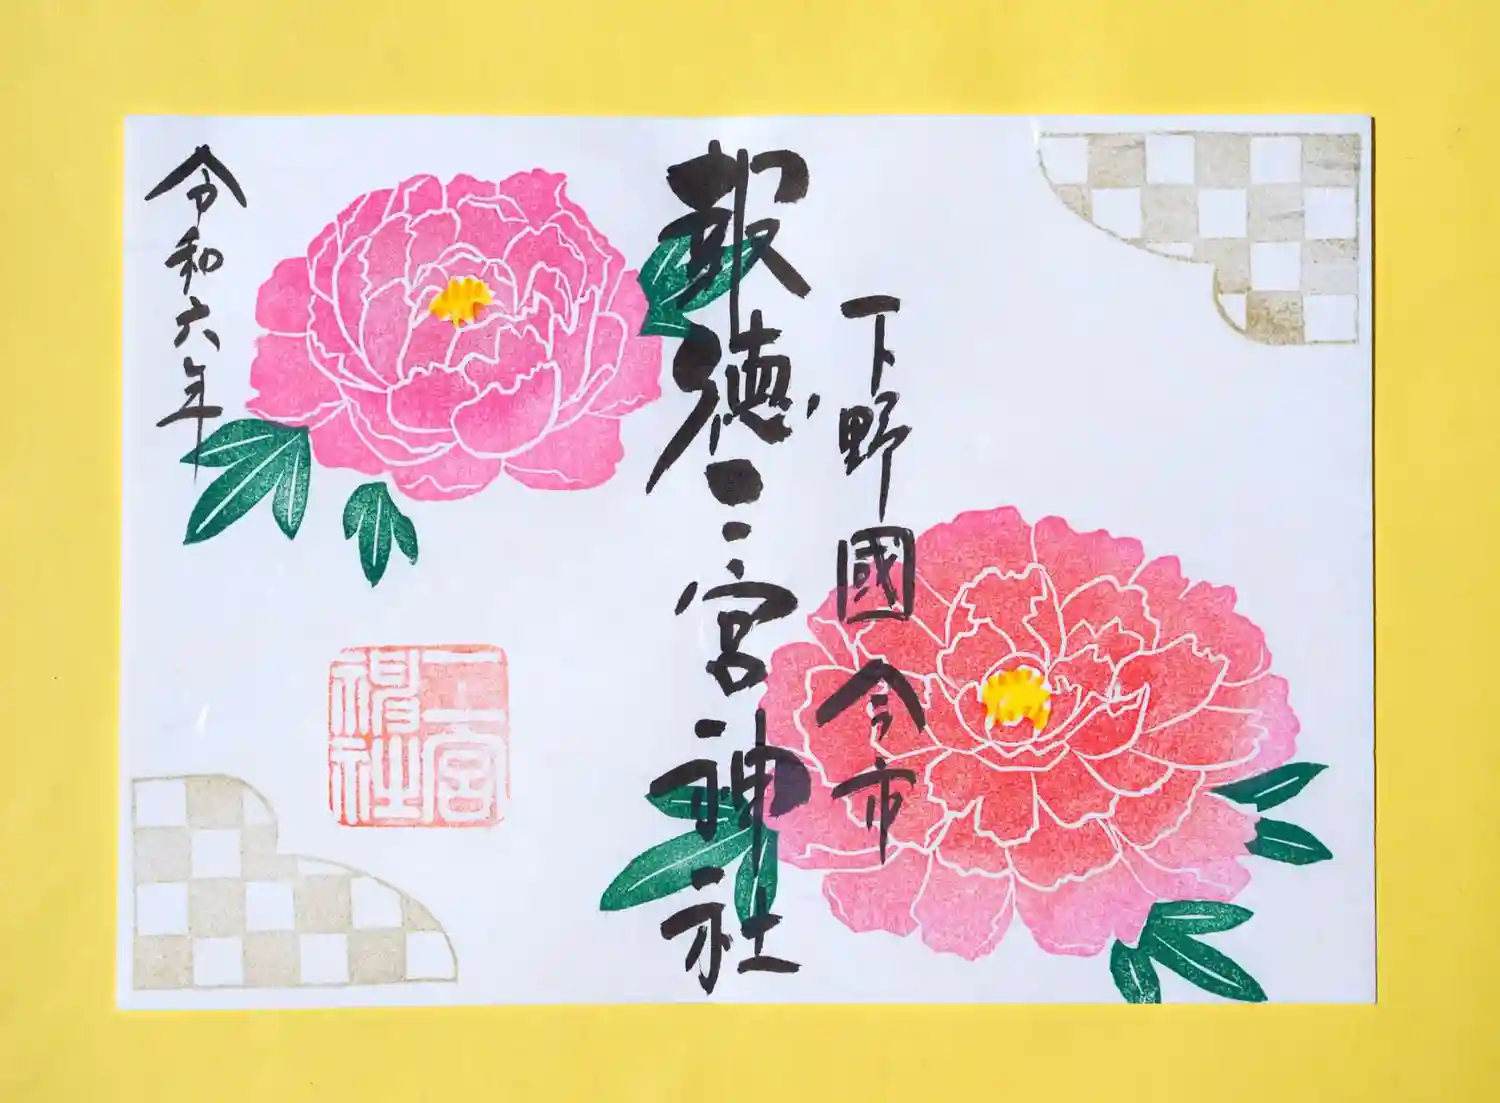 下野國今市
報徳二宮神社
令和六年
二宮神社